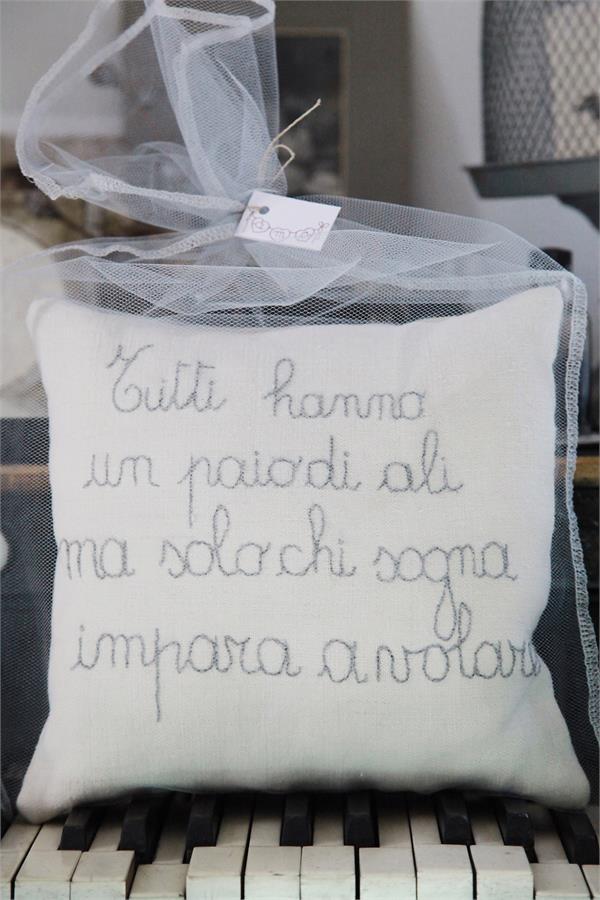 Tutti hanno
un paio di ali
ma solo chi sogna
impara a volare